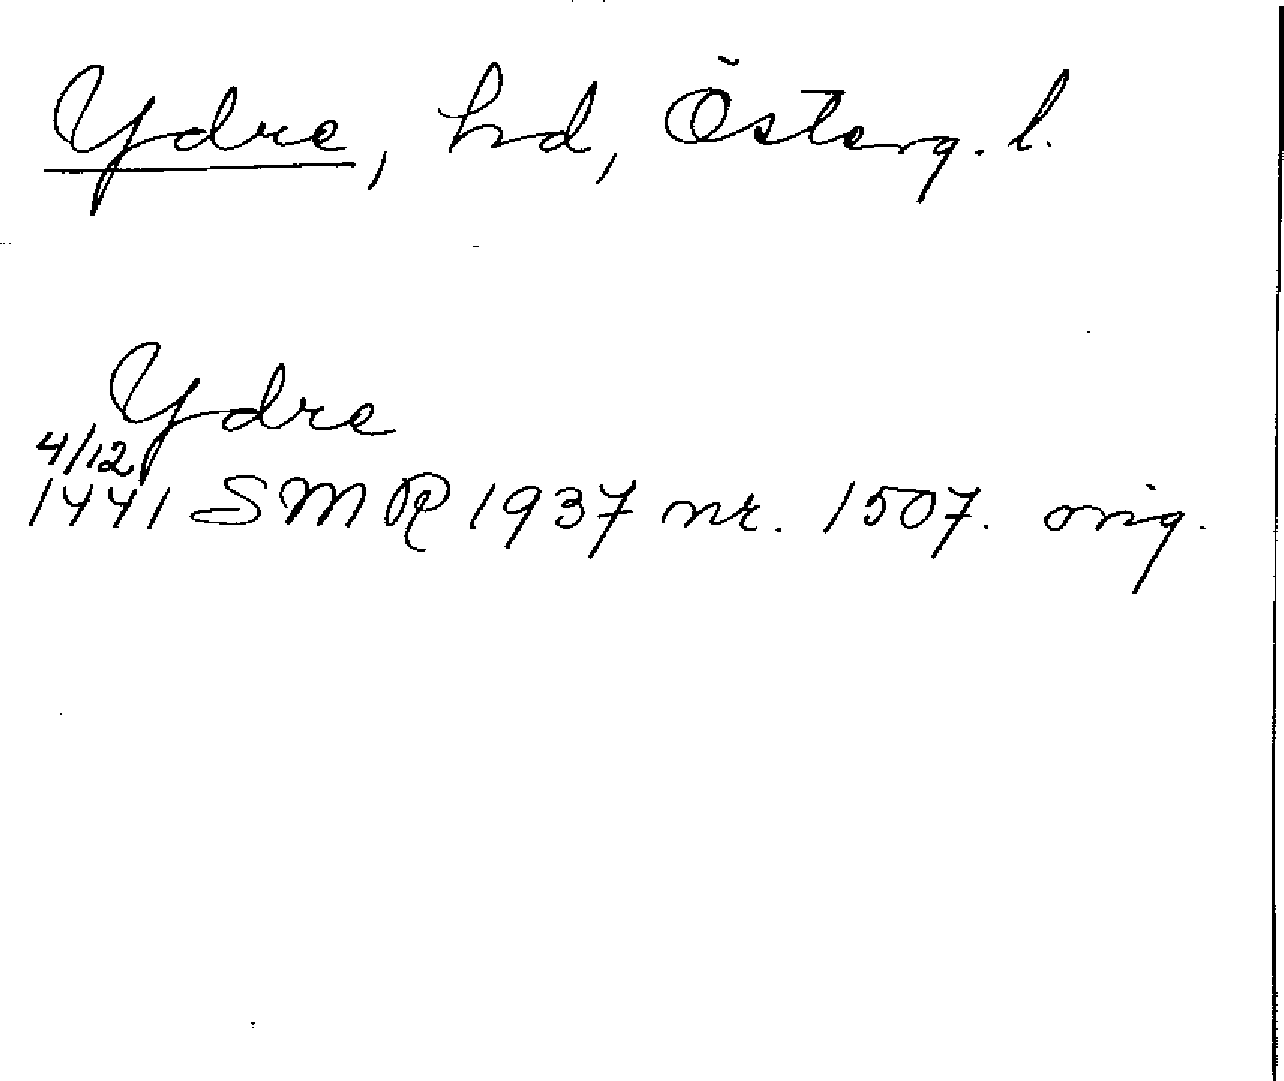 Ydre, hd, Österg. l.
Ydre
4/12
1441 SMR 1937 nr. 1507. orig.